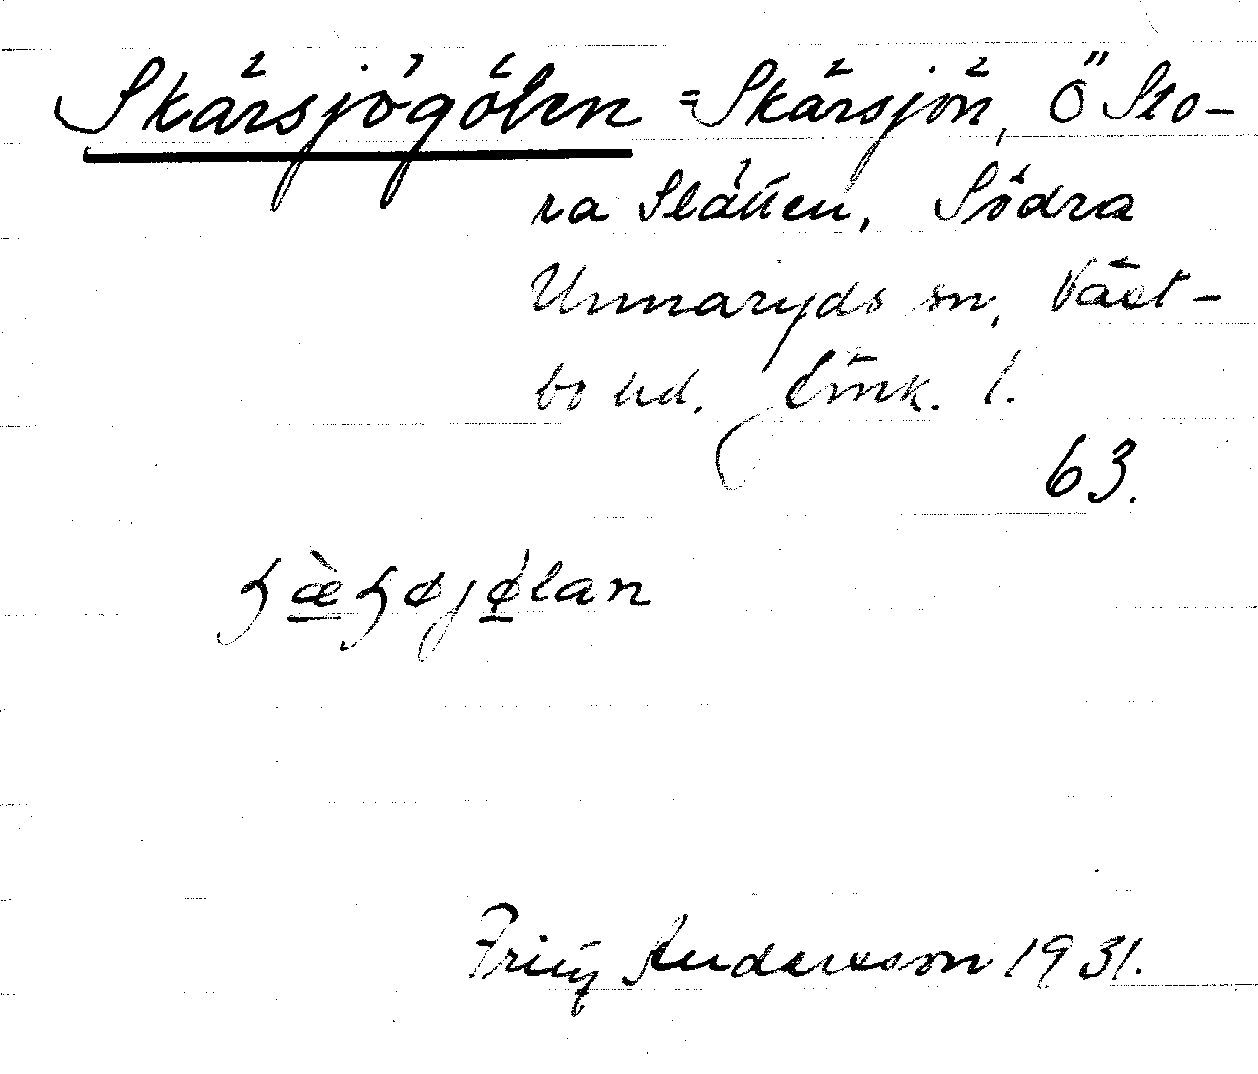 Skärsjögölen = Skärsjön, Ö Sto-
ra Slätten, Södra
Unnaryds sn, Väst-
bo hd. Jönk. l.
63.
Fritz Andersson 1931.